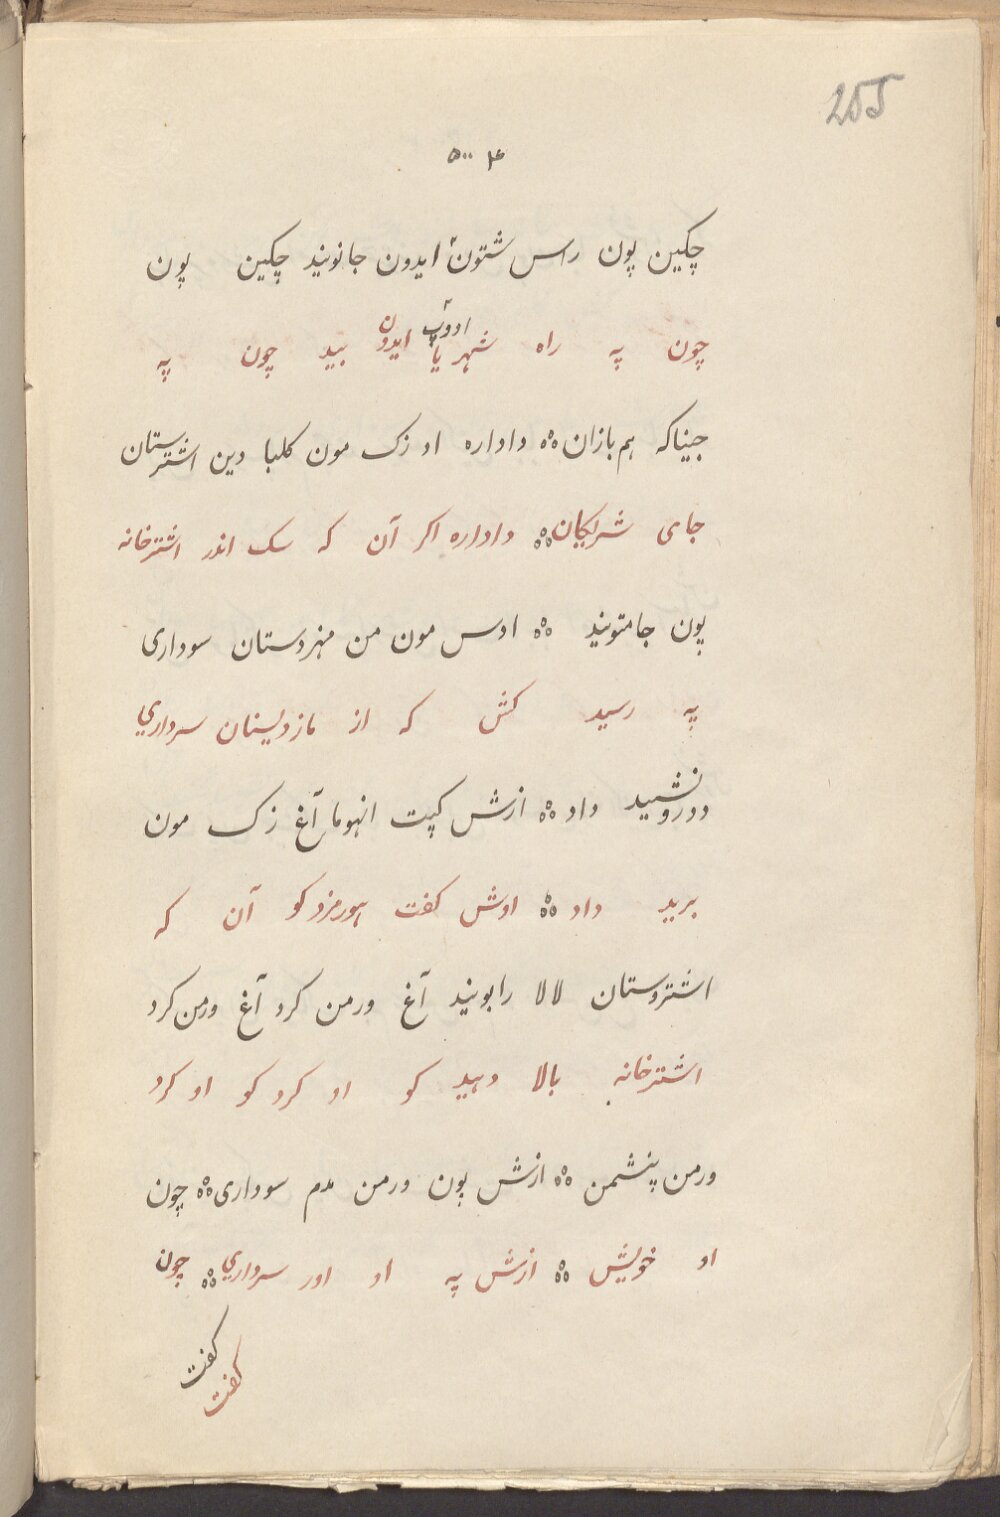 255
چکین پون راس شتون ایدون جانونید چکین پون
ادوپ
چون په راه شهر یا ایدون بید چون په
جیناکه هم بازان ؞ داداره او زک مون کلبا دین اشترستان
جای شریکان ؞ داداره اکر آن که سک اندر اشترخانه
پون جامتونید ؞ اوس مون من مهردستان سوداری
په رسید کش که از مازدیسنان سرداري
داد ؞ ازش کپت انهوما آغ زک مون
برید داد ؞ اوش کفت هورمزد کو آن که
اشتروستان لالا رابونید آغ ورمن کرد آغ ورمن کرد
اشترخانه بالا دهید کو او کرد کو او کرد
ورمن پنشمن ؞ ازش پون ورمن مدم سوداری ؞ چون
او خویش ؞ ازش په او اور سرداري ؞ چون
کفت
کفت